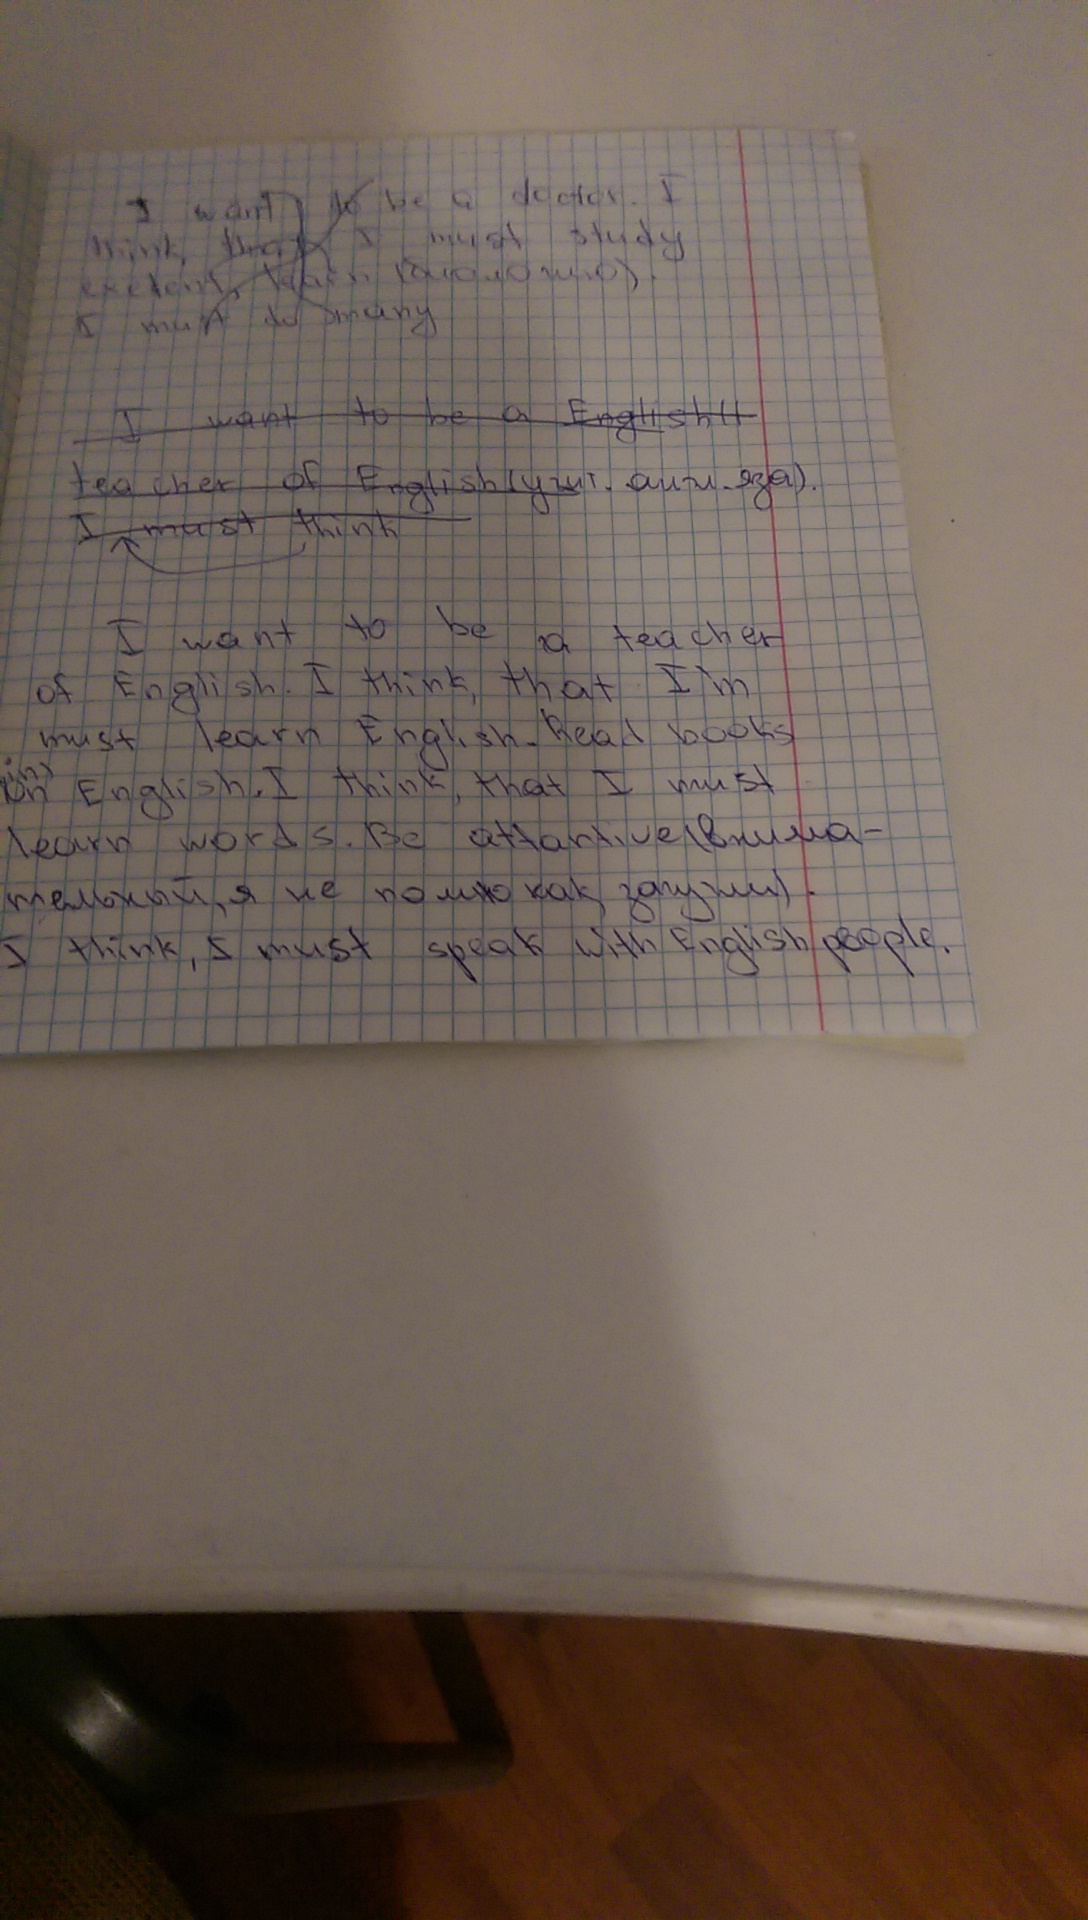 I want to be a doctor. I
think, that I must study
learn (биологию).
I must do many
I want to be a English
teacher of English (учит. англ. яза).
I must think
I want to be a teacher
of English. I think, that I'm
must learn English. Read books
in English. I think, that I must
learn words. Be attantive (внима-
тельный, я не помню как, загуглил).
I think, I must speak with English people.